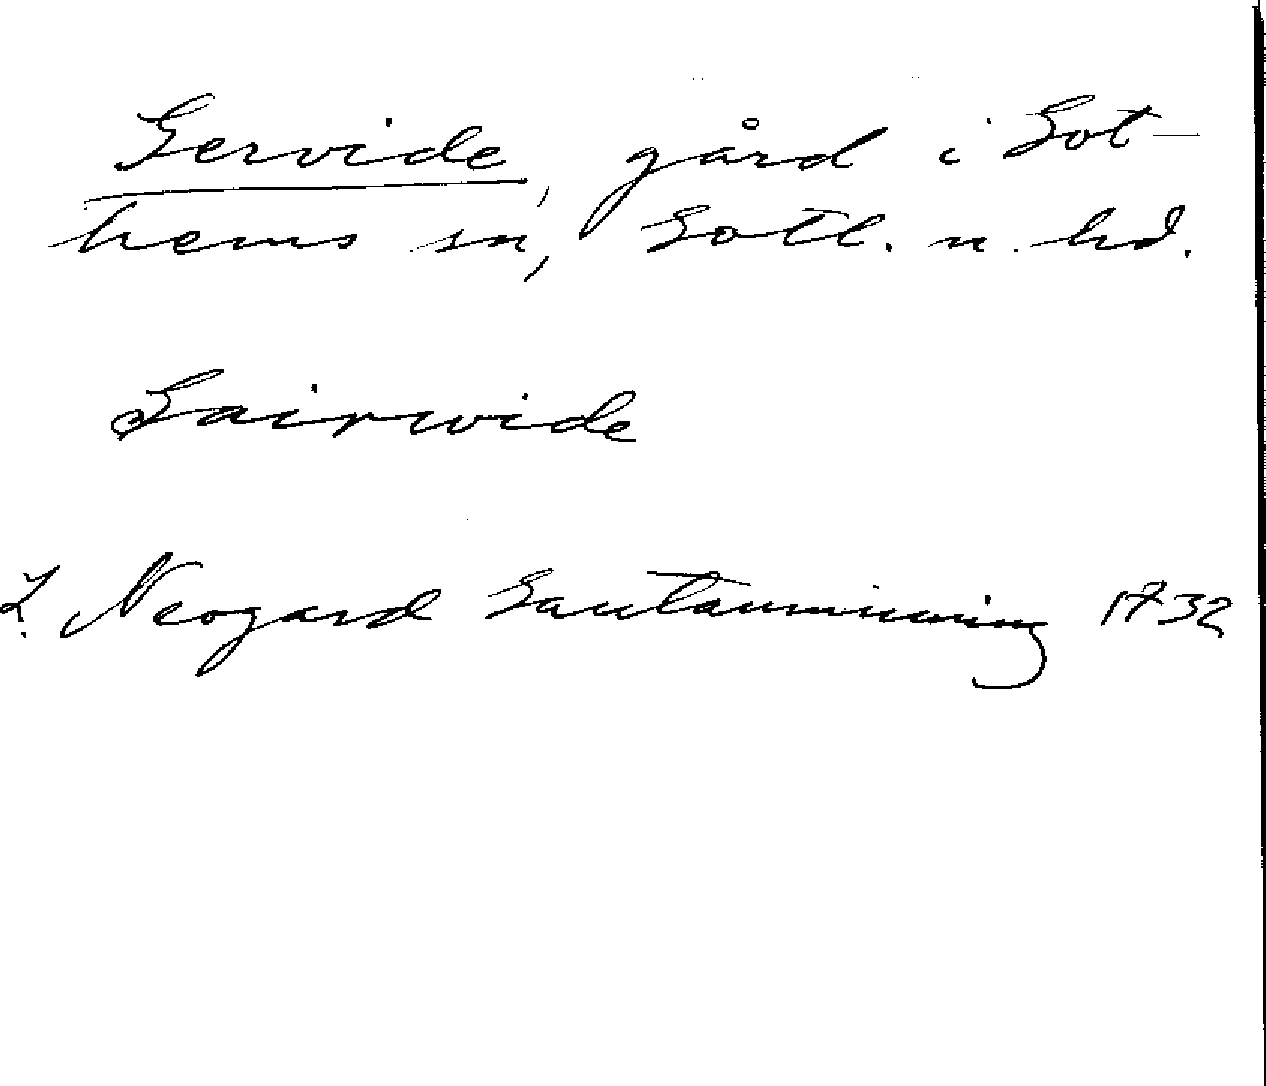 Gervide, gård i Got-
hems sn, Gotl. n. hd.
Gairwide
L. Neogard Gautauminning 1732